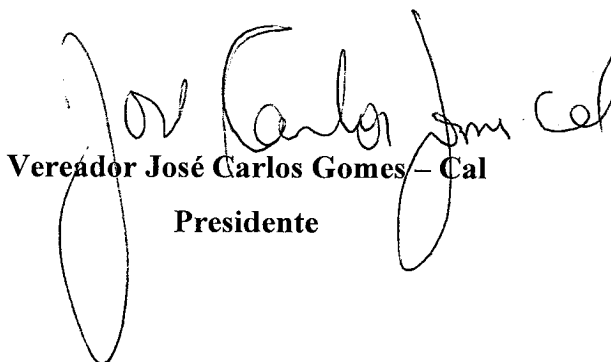 José Carlos Gomes Cal
Vereador José Carlos Gomes – Cal
Presidente